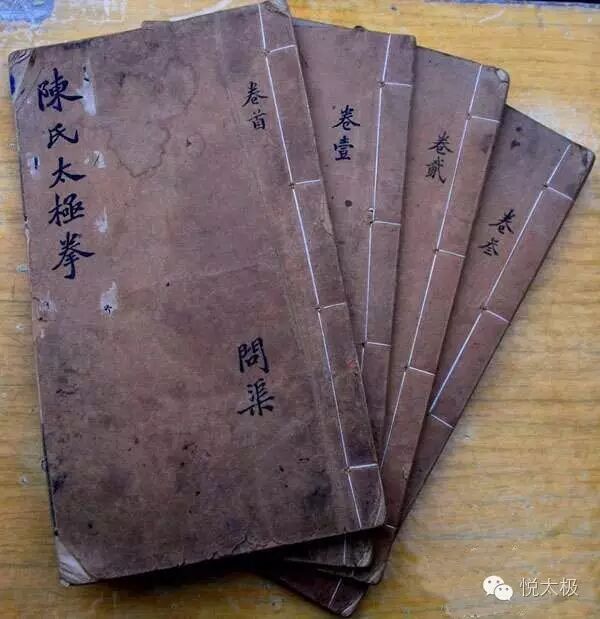 陳氏太極拳
卷首
問渠
卷壹
卷貳
卷叁
悦太极